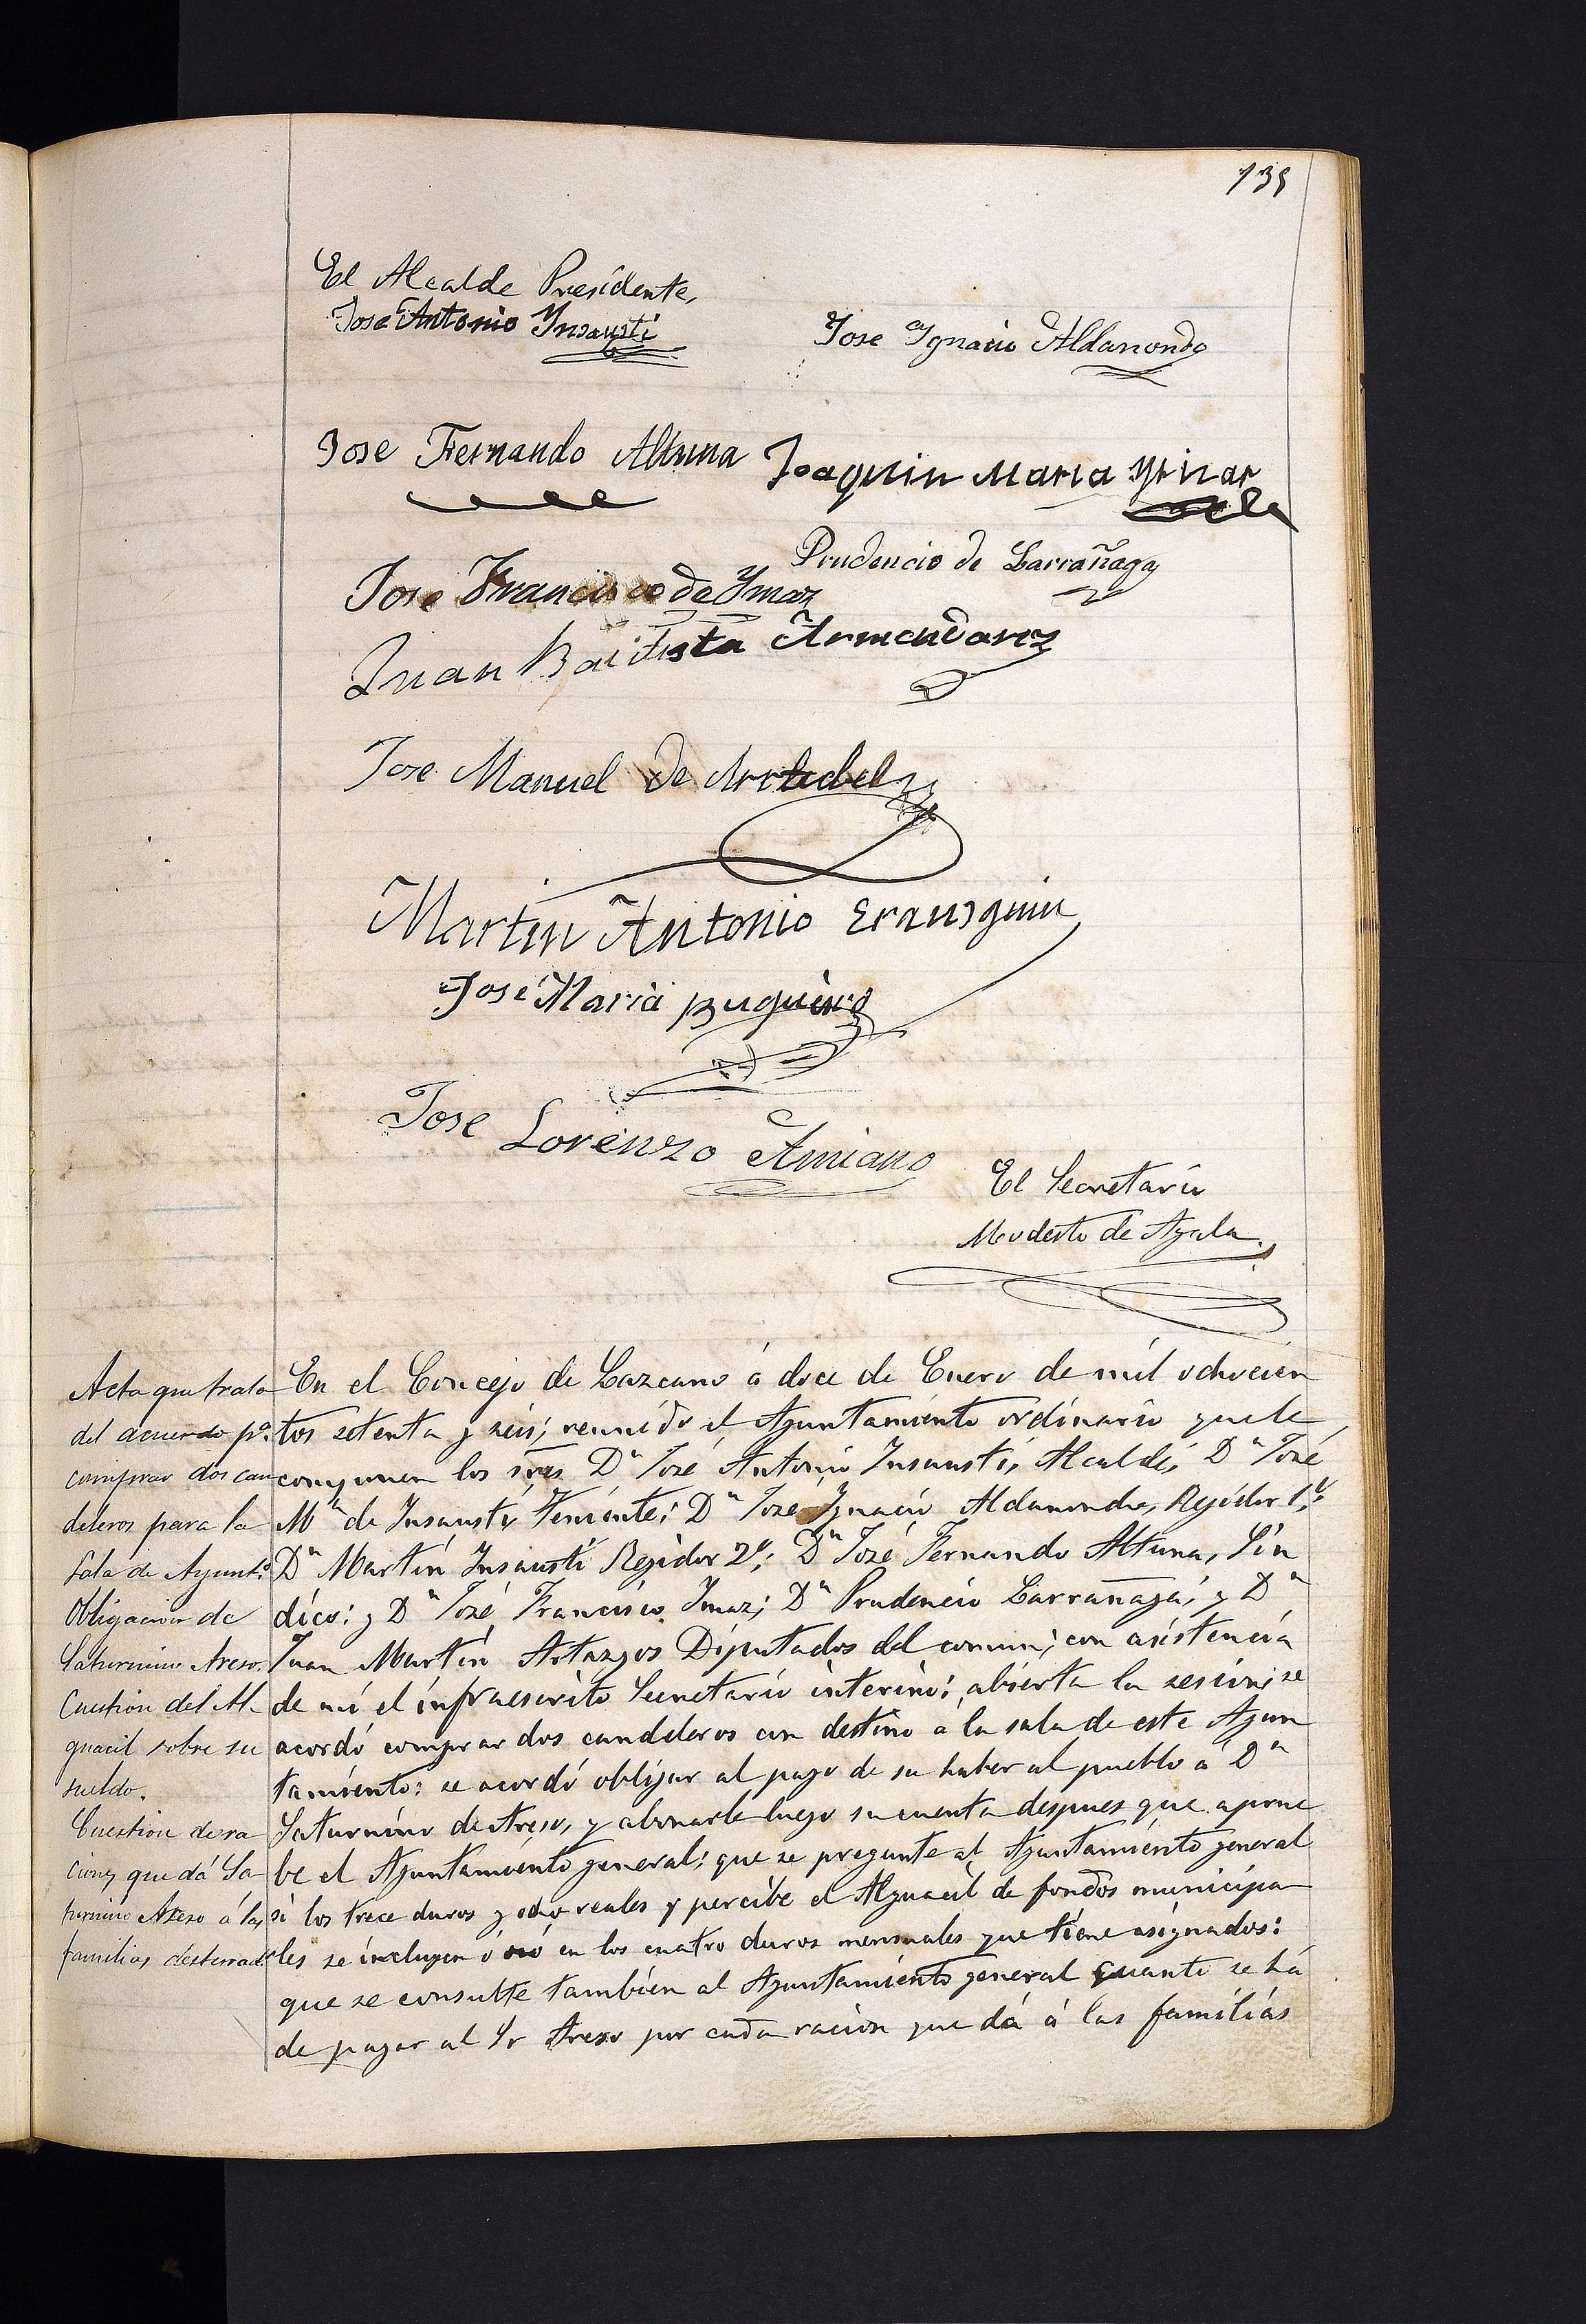 139
El Alcalde Presidente,
Jose Antonio Ynsausti
Jose Ygnacio Aldanondo
Jose Fernando Altuna
Joaquin Maria
Prudencio de Larrañaga
Jose Francisco de Ymaz
Juan Bautista Armendariz
Jose Manuel de
Martin Antonio Erausquin
José Maria
Jose Lorenzo Amiano
El Secretario
Modesto de Ayala
Acta que trata
del acuerdo pª.
comprar dos can
deleros para la
Sala de Ayuntº.
Obligacion de
Saturnino Areso.
Cuestion del Al-
guacil sobre su
sueldo.
Cuestion de ra
ciones que dá Sa-
turnino Areso á las
familias desterrad.
En el Concejo de Lazcano á doce de Enero de mil ochocien
tos setenta y seis; reunido el Ayuntamiento ordinario que le
componen los sres Dn José Antonio Insausti, Alcalde; Dn José
Mª de Insausti, Teniente; Dn José Ignacio Aldanondo, Regidor 1º;
Dn Martin Insausti Regidor 2º; Dn José Fernando Altuna, Sin
dico; y Dn José Francisco Imaz; Dn Prudencio Larrañaga; y Dn
Juan Martin Artazcos Diputados del comun; con asistencia
de mi el infraescrito Secretario interino; abierta la sesion; se
acordó comprar dos candeleros con destino á la sala de este Ayun
tamiento: se acordó obligar al pago de su haber al pueblo á Dn
Saturnino de Areso, y abonarle luego su cuenta despues que aprue
be el Ayuntamiento general; que se pregunte al Ayuntamiento general
si los trece duros y ocho reales q percibe el Alguacil de fondos municipa
les se incluyen ó nó en los cuatro duros mensuales que tiene asignados:
que se consulte tambien al Ayuntamiento general cuanto se há
de pagar al Sr Areso por cada racion que dá á las familias